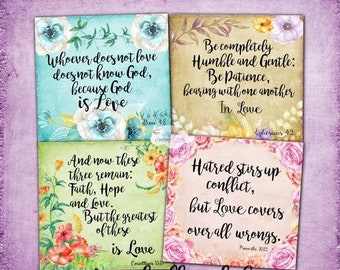 Whoever does not love
does not know God,
because God
is Love
Be completely
Humble and Gentle:
Be Patience,
bearing with one another
In Love
Ephesians 4:2
And now these
three remain:
Faith, Hope
and Love.
But the greatest
of these
is Love
Hatred stirs up
conflict,
but Love covers
over all wrongs.